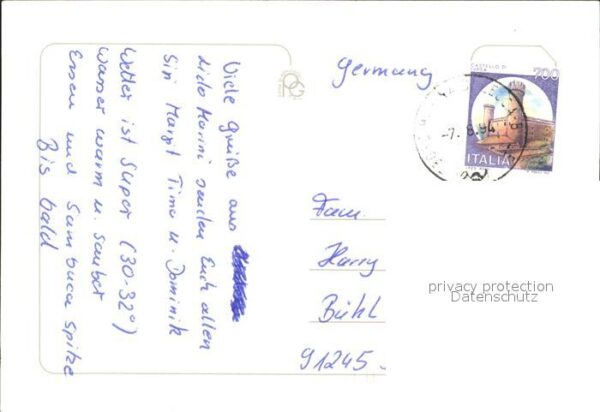 Viele Grüße aus
Lido Marini senden Euch allen
Siri Margit Timo u. Dominik
Wetter ist Super (30-32°)
Wasser warm u. sauber
Essen und Sambuca Spitze
Bis bald
Germany
CASTELLO DI
700
ITALIA
-7.8.94
Fam.
Harry
Bühl
91245
privacy protection
Datenschutz